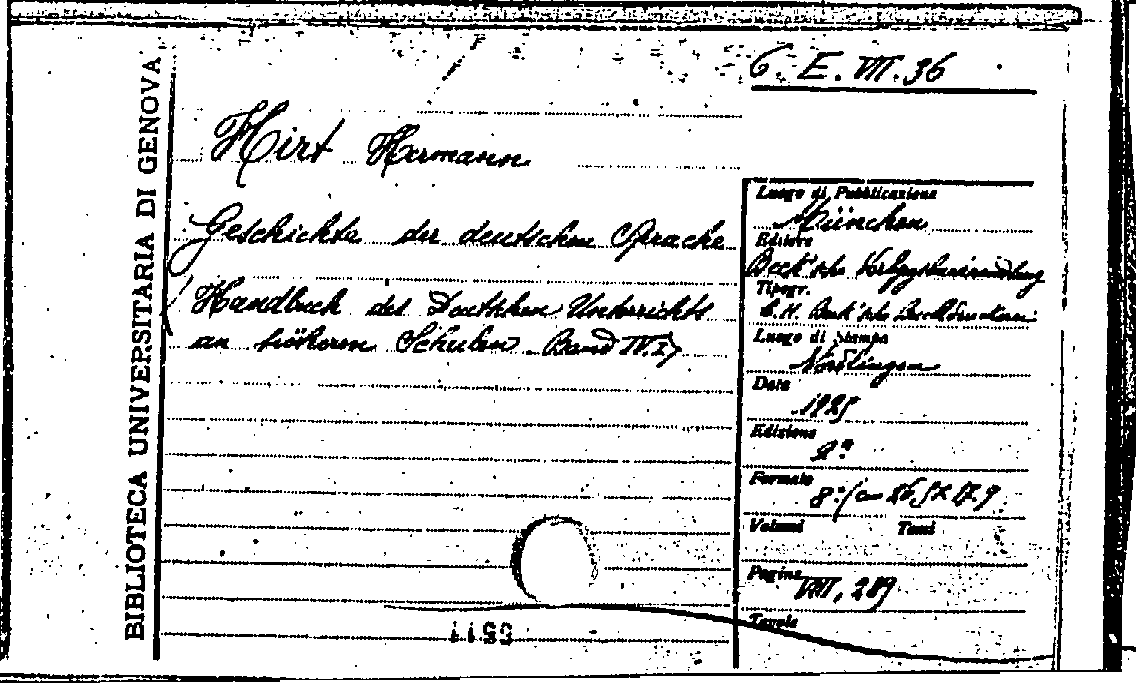 6. E. VII. 36
BIBLIOTECA UNIVERSITARIA DI GENOVA
Hirt Hermann
Geschichte der deutschen Sprache
Handbuch des Deutschen Unterrichts
an höheren Schulen Band IV. I
Luogo di Pubblicazione
München
Editore
Beck'sche
Tipogr.
C. H. Beck'sche
Luogo di Stampa
Nördlingen
Data
1925
Edizione
2ª
Formato
8°
Volumi Tomi
Pagine
VIII, 289
Tavole